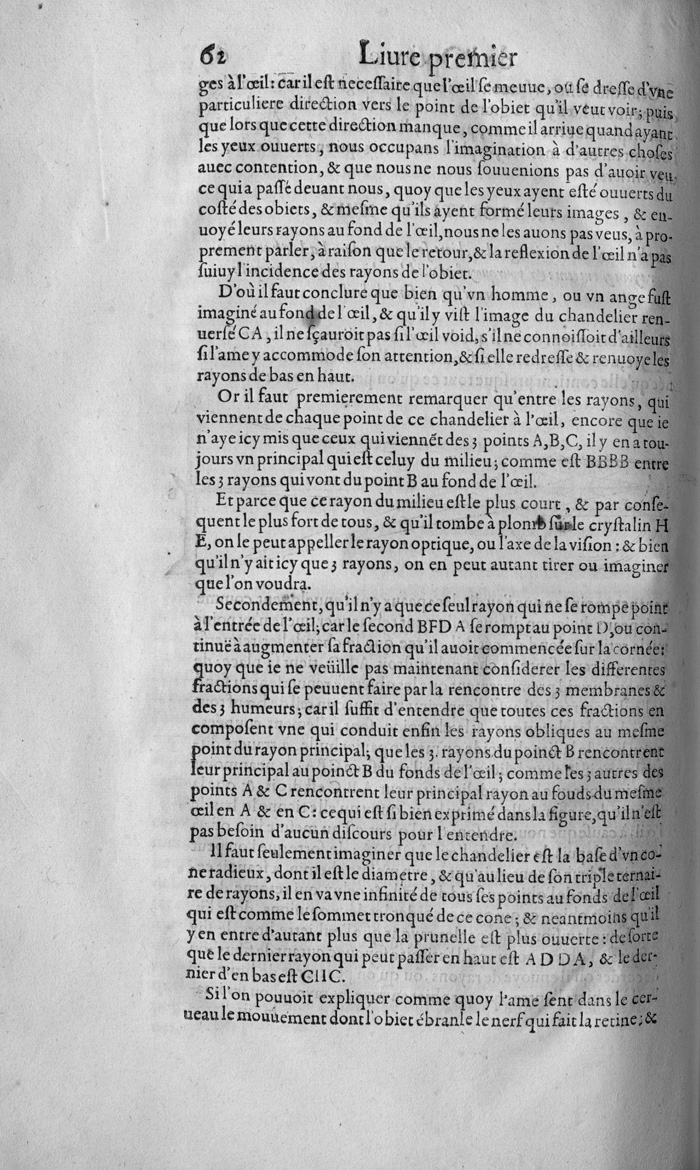 62 Liure premier
ges à l'œil: car il est necessaire que l'œil se meuue, où se dresse d'vne
particuliere direction vers le point de l'obiet qu'il veut voir; puis
que lors que cette direction manque, comme il arriue quand ayant
les yeux ouuerts, nous occupans l'imagination à d'autres choses
auec contention, & que nous ne nous souuenions pas d'auoir veu
ce qui a passé deuant nous, quoy que les yeux ayent esté ouuerts du
costé des obiets, & mesme qu'ils ayent formé leurs images, & en-
uoyé leurs rayons au fond de l'œil, nous ne les auons pas veus, à pro-
prement parler, à raison que le retour, & la reflexion de l'œil n'a pas
suiuy l'incidence des rayons de l'obiet.
D'où il faut conclure que bien qu'vn homme, ou vn ange fust
imaginé au fond de l'œil, & qu'il y vist l'image du chandelier ren-
uersé CA, il ne sçauroit pas si l'œil void, s'il ne connoissoit d'ailleurs
si l'ame y accommode son attention, & si elle redresse & renuoye les
rayons de bas en haut.
Or il faut premierement remarquer qu'entre les rayons, qui
viennent de chaque point de ce chandelier à l'œil, encore que ie
n'aye icy mis que ceux qui viennẽt des 3 points A, B, C, il y en a tou-
jours vn principal qui est celuy du milieu; comme est BBBB entre
les 3 rayons qui vont du point B au fond de l'œil.
Et parce que ce rayon du milieu est le plus court, & par conse-
quent le plus fort de tous, & qu'il tombe à plomb sur le crystalin H
E, on le peut appeller le rayon optique, ou l'axe de la vision: & bien
qu'il n'y ait icy que 3 rayons, on en peut autant tirer ou imaginer
que l'on voudra.
Secondement, qu'il n'y a que ce seul rayon qui ne se rompe point
à l'entrée de l'œil; car le second BFD A se rompt au point D, ou con-
tinuë à augmenter sa fraction qu'il auoit commencée sur la cornée:
quoy que ie ne veüille pas maintenant considerer les differentes
fractions qui se peuuent faire par la rencontre des 3 membranes &
des 3 humeurs; car il suffit d'entendre que toutes ces fractions en
composent vne qui conduit enfin les rayons obliques au mesme
point du rayon principal; que les 3. rayons du poinct B rencontrent
leur principal au poinct B du fonds de l'œil; comme les 3 autres des
points A & C rencontrent leur principal rayon au fouds du mesme
œil en A & en C: ce qui est si bien exprimé dans la figure, qu'il n'est
pas besoin d'aucun discours pour l'entendre.
Il faut seulement imaginer que le chandelier est la base d'vn co-
ne radieux, dont il est le diametre, & qu'au lieu de son triple ternai-
re de rayons, il en va vne infinité de tous ses points au fonds de l'œil
qui est comme le sommet tronqué de ce cone; & neantmoins qu'il
y en entre d'autant plus que la prunelle est plus ouuerte: de sorte
que le dernier rayon qui peut passer en haut est A D D A, & le der-
nier d'en bas est CIIC.
Si l'on pouuoit expliquer comme quoy l'ame sent dans le cer-
ueau le mouuement dont l'obiet ébranle le nerf qui fait la retine; &